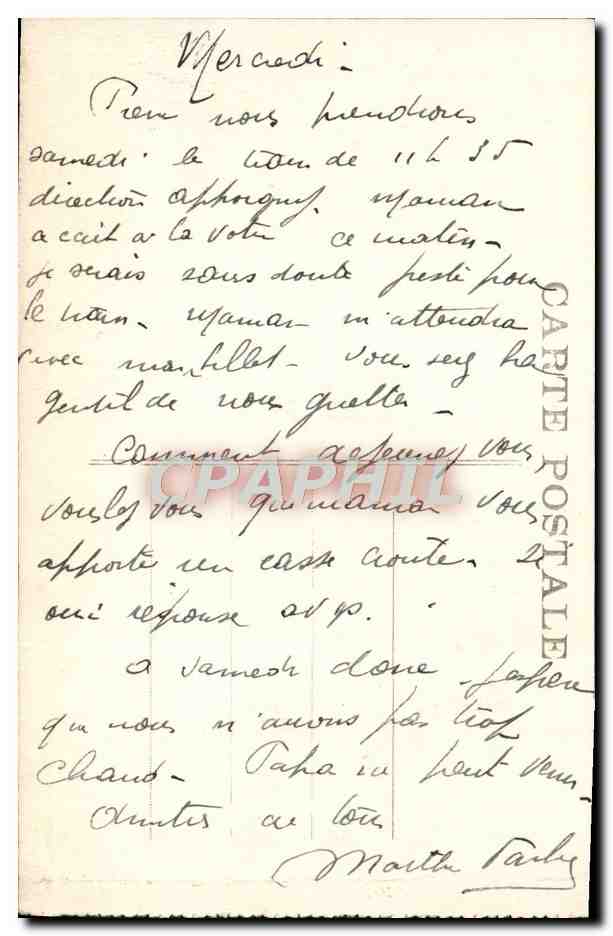 Mercredi -
nous prendrons
samedi le train de 11 h 35
direction Maman
a la votre ce matin -
je serais sans doute juste pour
le train - Maman m'attendra
avec mon billet - Vous serez bien
gentil de nous guetter -
Comment dejeunez vous
voulez vous que maman vous
apporte un casse croute - Si
oui réponse svp.
a samedi donc - J'espère
que nous n'aurons pas trop
chaud - Papa ne peut venir -
Amities de tous
Marthe
CARTE POSTALE
CPAPHIL